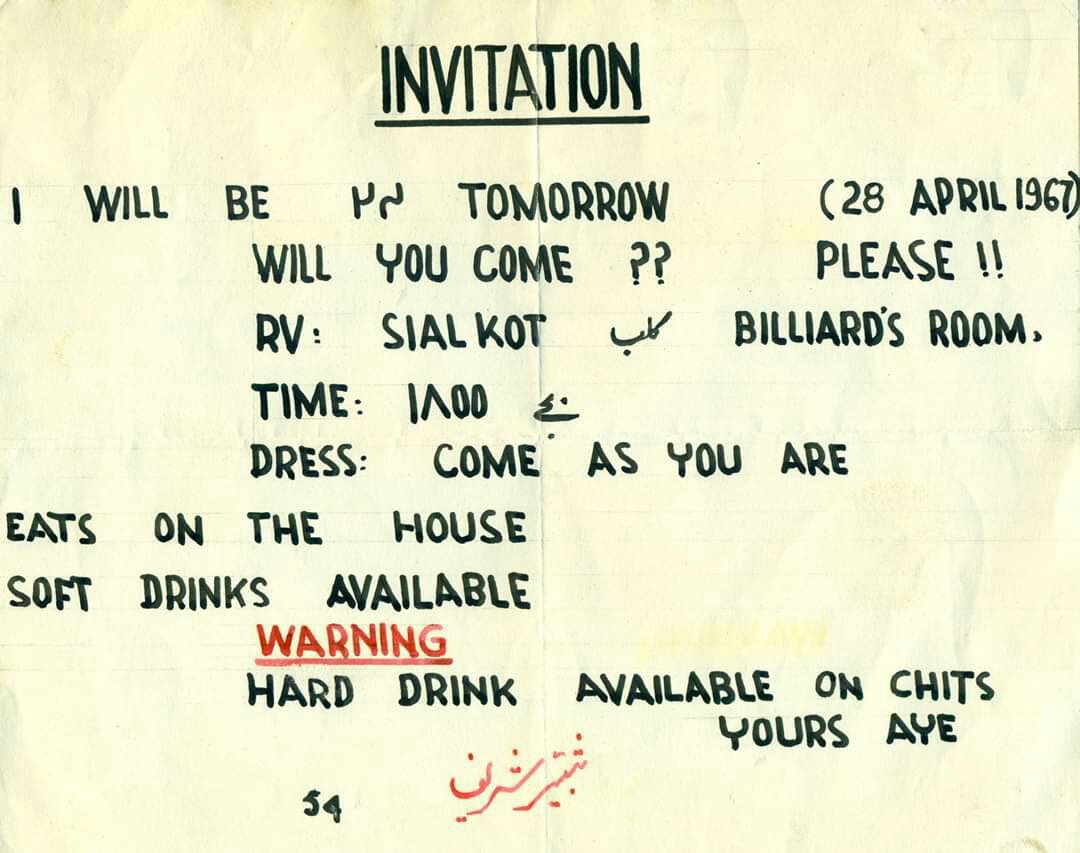 INVITATION
I WILL BE ۲۴ TOMORROW (28 APRIL 1967)
WILL YOU COME ?? PLEASE !!
RV: SIALKOT کلب BILLIARD'S ROOM.
TIME: ۱۸00 بجے
DRESS: COME AS YOU ARE
EATS ON THE HOUSE
SOFT DRINKS AVAILABLE
WARNING
HARD DRINK AVAILABLE ON CHITS
YOURS AYE
شبیر شریف
54